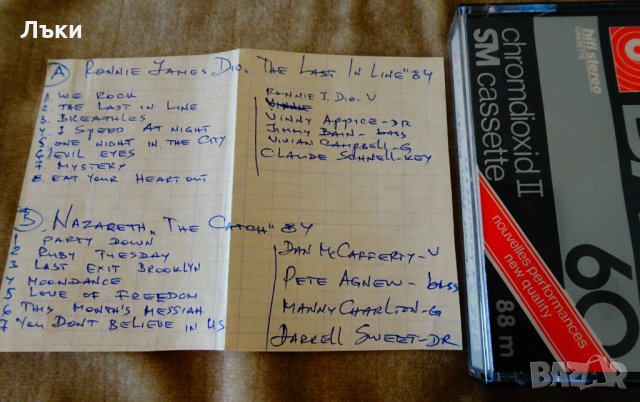 Лъки
A RONNIE JAMES DIO. THE LAST IN LINE" 84
1. WE ROCK
2. THE LAST IN LINE
3. BREATHLES
4. I SPEED AT NIGHT
5. ONE NIGHT IN THE CITY
6. EVIL EYES
7. MYSTERY
8. EAT YOUR HEART OUT
RONNIE J. DIO-V
VINNY APPICE-DR
JIMMY BAIN-BASS
VIVIAN CAMPBELL-G
CLAUDE SCHNELL-KEY
B NAZARETH „THE CATCH" 84
1 PARTY DOWN
2 RUBY TUESDAY
3 LAST EXIT BROOKLYN
4 MOONDANCE
5 LOVE OF FREEDOM
6 THIS MONTH'S MESSIAH
7 YOU DON'T BELIEVE IN US
DAN MCCAFFERTY-V
PETE AGNEW-BASS
MANNY CHARLTON-G
DARRELL SWEET-DR
hifi stereo
CASSETTE
chromdioxid II
SM cassette
nouvelles performances
new quality
60
88 m
BAZAR